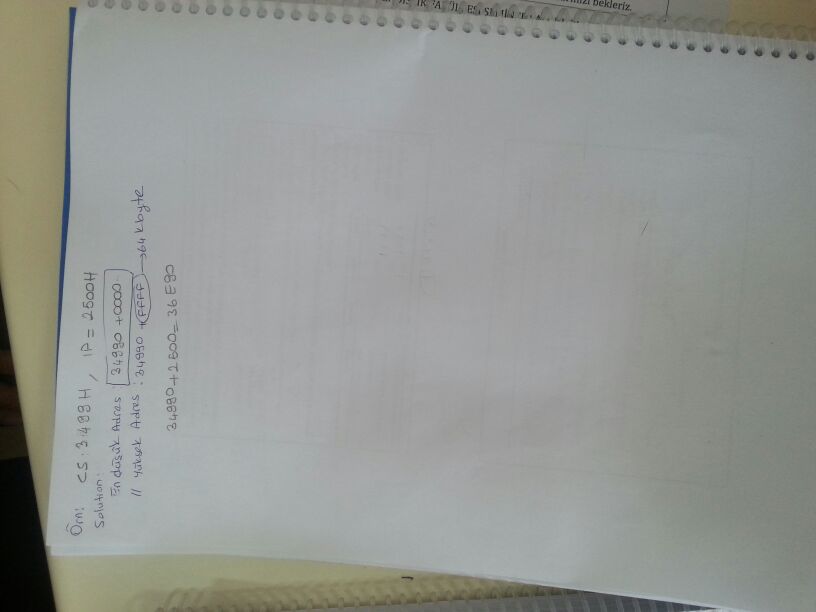 bekleriz.
Örn: CS: 3499H, IP = 2500H
Solution:
En düşük Adres : 34990 + 0000
// Yüksek Adres : 34990 + FFFF → 64 kbyte
34990 + 2500 = 36E90